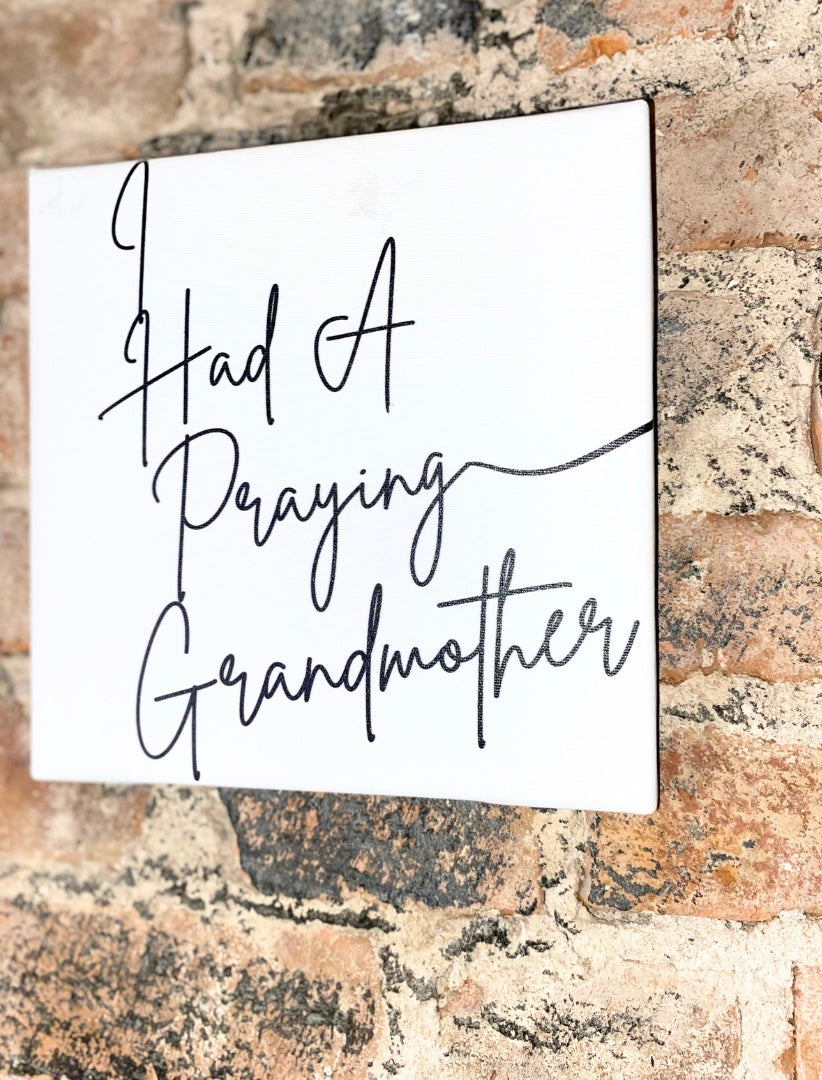 I
Had A
Praying
Grandmother